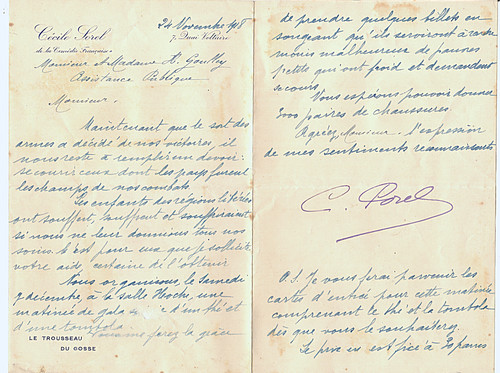 24 Novembre 1918
Cécile Sorel
7, Quai Voltaire
de la Comédie Française
Monsieur et Madame H.
Assistance Publique
Monsieur,
Maintenant que le sort des
armes a décidé de nos victoires, il
nous reste à remplir un devoir:
secourir ceux dont les pays furent
les champs de nos combats.
Les enfants des régions libérées
ont souffert, souffrent et souffriraient
si nous ne leur donnions tous nos
soins. C'est pour eux que je sollicite
votre aide, certaine de l'obtenir.
Nous organisons, le Samedi
7 décembre, à la salle Hoche, une
matinée de gala d'un thé et
d'une tombola
faire la grâce
LE TROUSSEAU
DU GOSSE
de prendre quelques billets en
songeant qu'ils serviront à rendre
moins malheureux de pauvres
petits qui ont froid et demandent
secours.
Nous espérons pouvoir donner
300 paires de chaussures.
Agréez, Monsieur, l'expression
de mes sentiments reconnaissants
C. Sorel
P.S. Je vous ferai parvenir les
cartes d'entrée pour cette matinée
comprenant le thé et la tombola
dès que vous le souhaiterez.
Le prix en est fixé à 20 francs